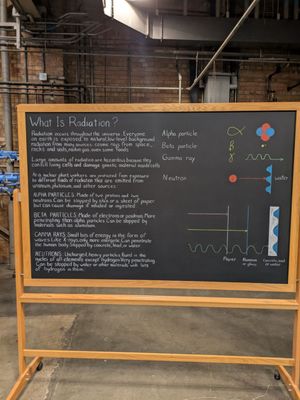 What Is Radiation?
Radiation occurs throughout the universe. Everyone
on earth is exposed to natural, low-level background
radiation from many sources: cosmic rays from space,
rocks and soils, radon gas, even some foods.
Large amounts of radiation are hazardous because they
can kill living cells and damage genetic material inside cells.
At a nuclear plant workers are protected from exposure
to different kinds of radiation that are emitted from
uranium, plutonium, and other sources:
ALPHA PARTICLES: Made of two protons and two
neutrons. Can be stopped by skin or a sheet of paper
but can cause damage if inhaled or ingested.
BETA PARTICLES: Made of electrons or positrons. More
penetrating than alpha particles. Can be stopped by
materials such as aluminum.
GAMMA RAYS: Small bits of energy in the form of
waves. Like X-rays, only more energetic. Can penetrate
the human body. Stopped by concrete, lead, or water.
NEUTRONS: Uncharged, heavy particles found in the
nucleus of all elements except hydrogen. Very penetrating.
Can be stopped by water or other materials with lots
of hydrogen in them.
Alpha particle α
Beta particle β
Gamma ray γ
Neutron
water
α
β
γ
Paper
Aluminum
or glass
Concrete, lead
or water